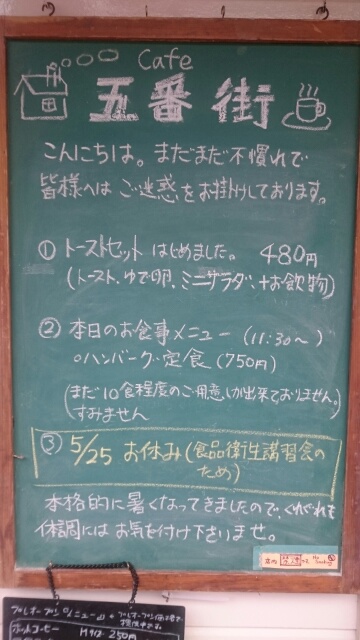 Cafe
五番街
こんにちは。まだまだ不慣れで
皆様へは ご迷惑をお掛けしております。
① トーストセット はじめました。 480円
(トースト、ゆで卵、ミニサラダ+お飲物)
② 本日のお食事メニュー (11:30〜)
○ハンバーグ定食 (750円)
(まだ10食程度のご用意しか出来ておりません。
すみません
③ 5/25 お休み (食品衛生講習会の
ため)
本格的に暑くなってきましたので、くれぐれも
体調には お気を付け下さいませ。
店内 禁煙 No Smoking
プレオープンメニュー
ホットコーヒー 250円